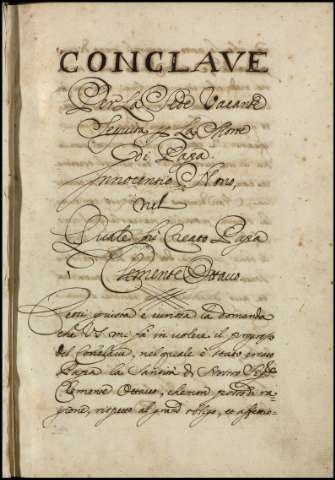 CONCLAVE
Per La Sede Vacante
Seguita p La Morte
di Papa
Innocentio Nono,
nel
Quale fù Creato Papa
Clemente Ottavo
è la domanda
che V.S. mi fà in volere il progresso
del Conclave, nel quale è stato creato
Papa la Santità di Nostro Sig.re
Clemente Ottavo, che non posso di ra=
gione, rispetto al grand'obligo, et affettio=